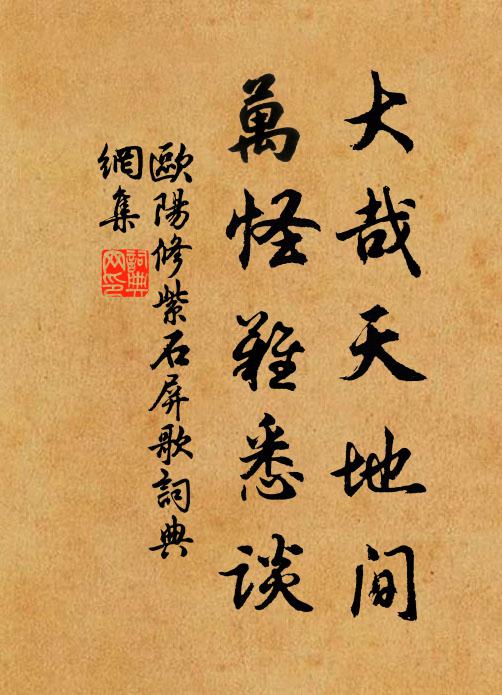 大哉天地间
萬怪難悉談
歐陽修紫石屏歌詞典
網集
詞典
网印